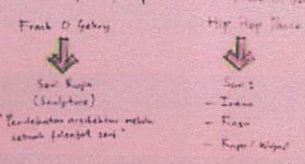 Frank O Gehry
Seni Rupa
(Sculpture)
"Pendekatan arsitektur melalui
sebuah
seni"
Hip Hop Dance
Seni :
- Irama
-
- Rupa /